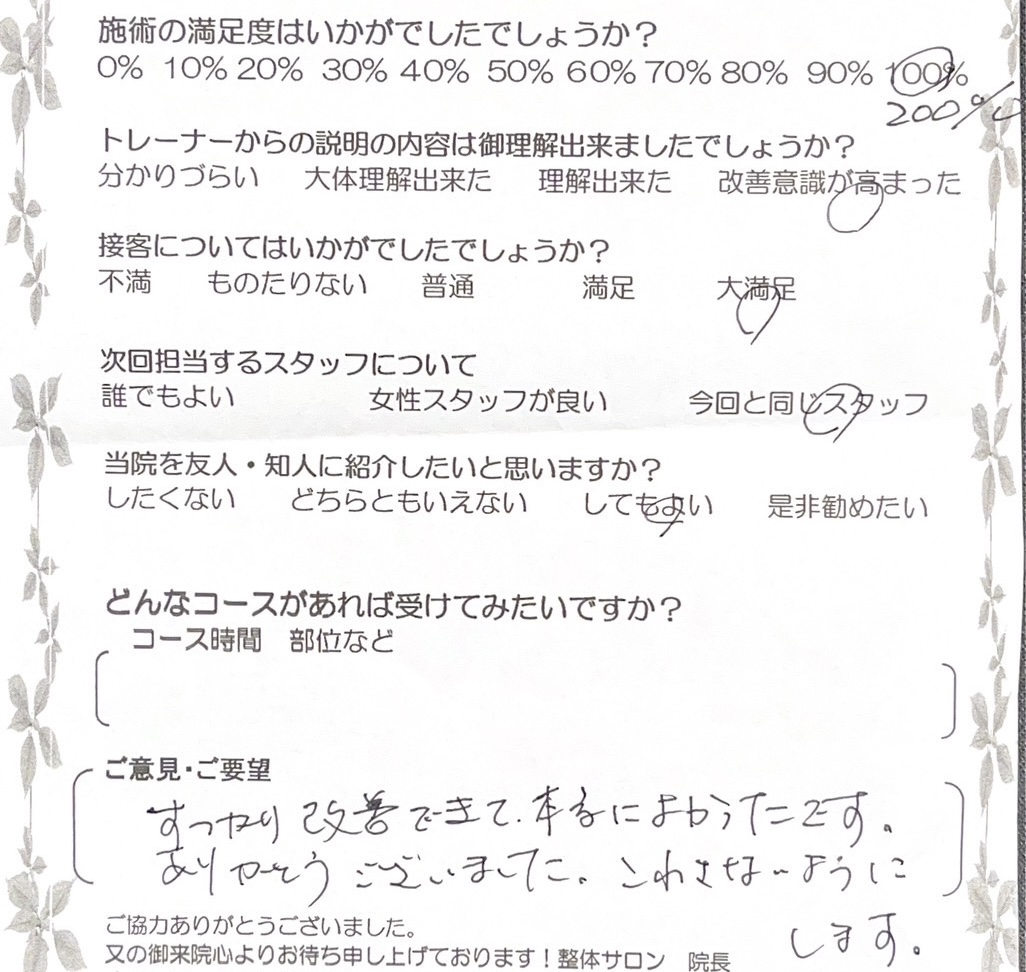 施術の満足度はいかがでしたでしょうか？
0% 10% 20% 30% 40% 50% 60% 70% 80% 90% 100%
200%
トレーナーからの説明の内容は御理解出来ましたでしょうか？
分かりづらい 大体理解出来た 理解出来た 改善意識が高まった
接客についてはいかがでしたでしょうか？
不満 ものたりない 普通 満足 大満足
次回担当するスタッフについて
誰でもよい 女性スタッフが良い 今回と同じスタッフ
当院を友人・知人に紹介したいと思いますか？
したくない どちらともいえない してもよい 是非勧めたい
どんなコースがあれば受けてみたいですか？
コース時間 部位など
ご意見・ご要望
すっかり改善できて、本当によかったです。
ありがとうございました。こわさないように
します。
ご協力ありがとうございました。
又の御来院心よりお待ち申し上げております！整体サロン 院長